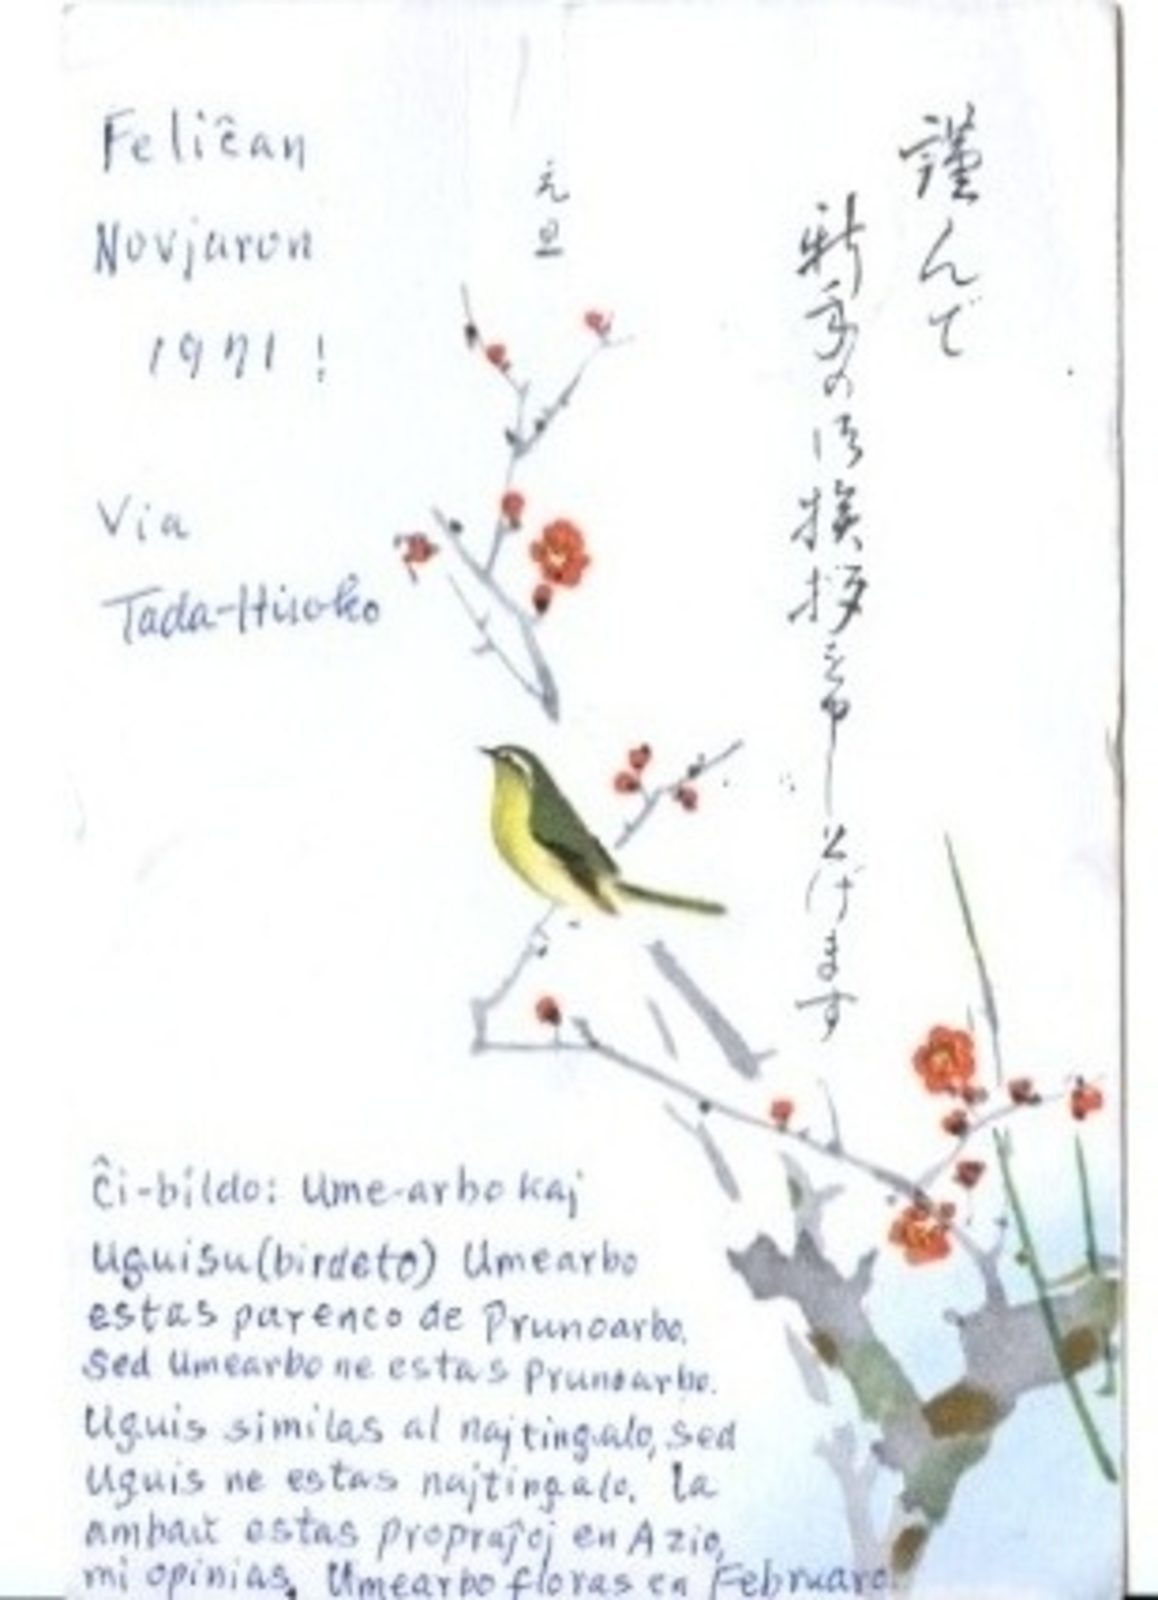 Feliĉan
Novjaron
1971!
Via
Tada-Hisako
元旦
謹んで
新年の御挨拶を申し上げます
Ĉi-bildo: Ume-arbo kaj
Uguisu(birdeto) Umearbo
estas parenco de Prunoarbo.
Sed Umearbo ne estas Prunoarbo.
Uguis similas al najtingalo, sed
Uguis ne estas najtingalo. La
ambaŭ estas propraĵoj en Azio,
mi opinias. Umearbo floras en Februaro.